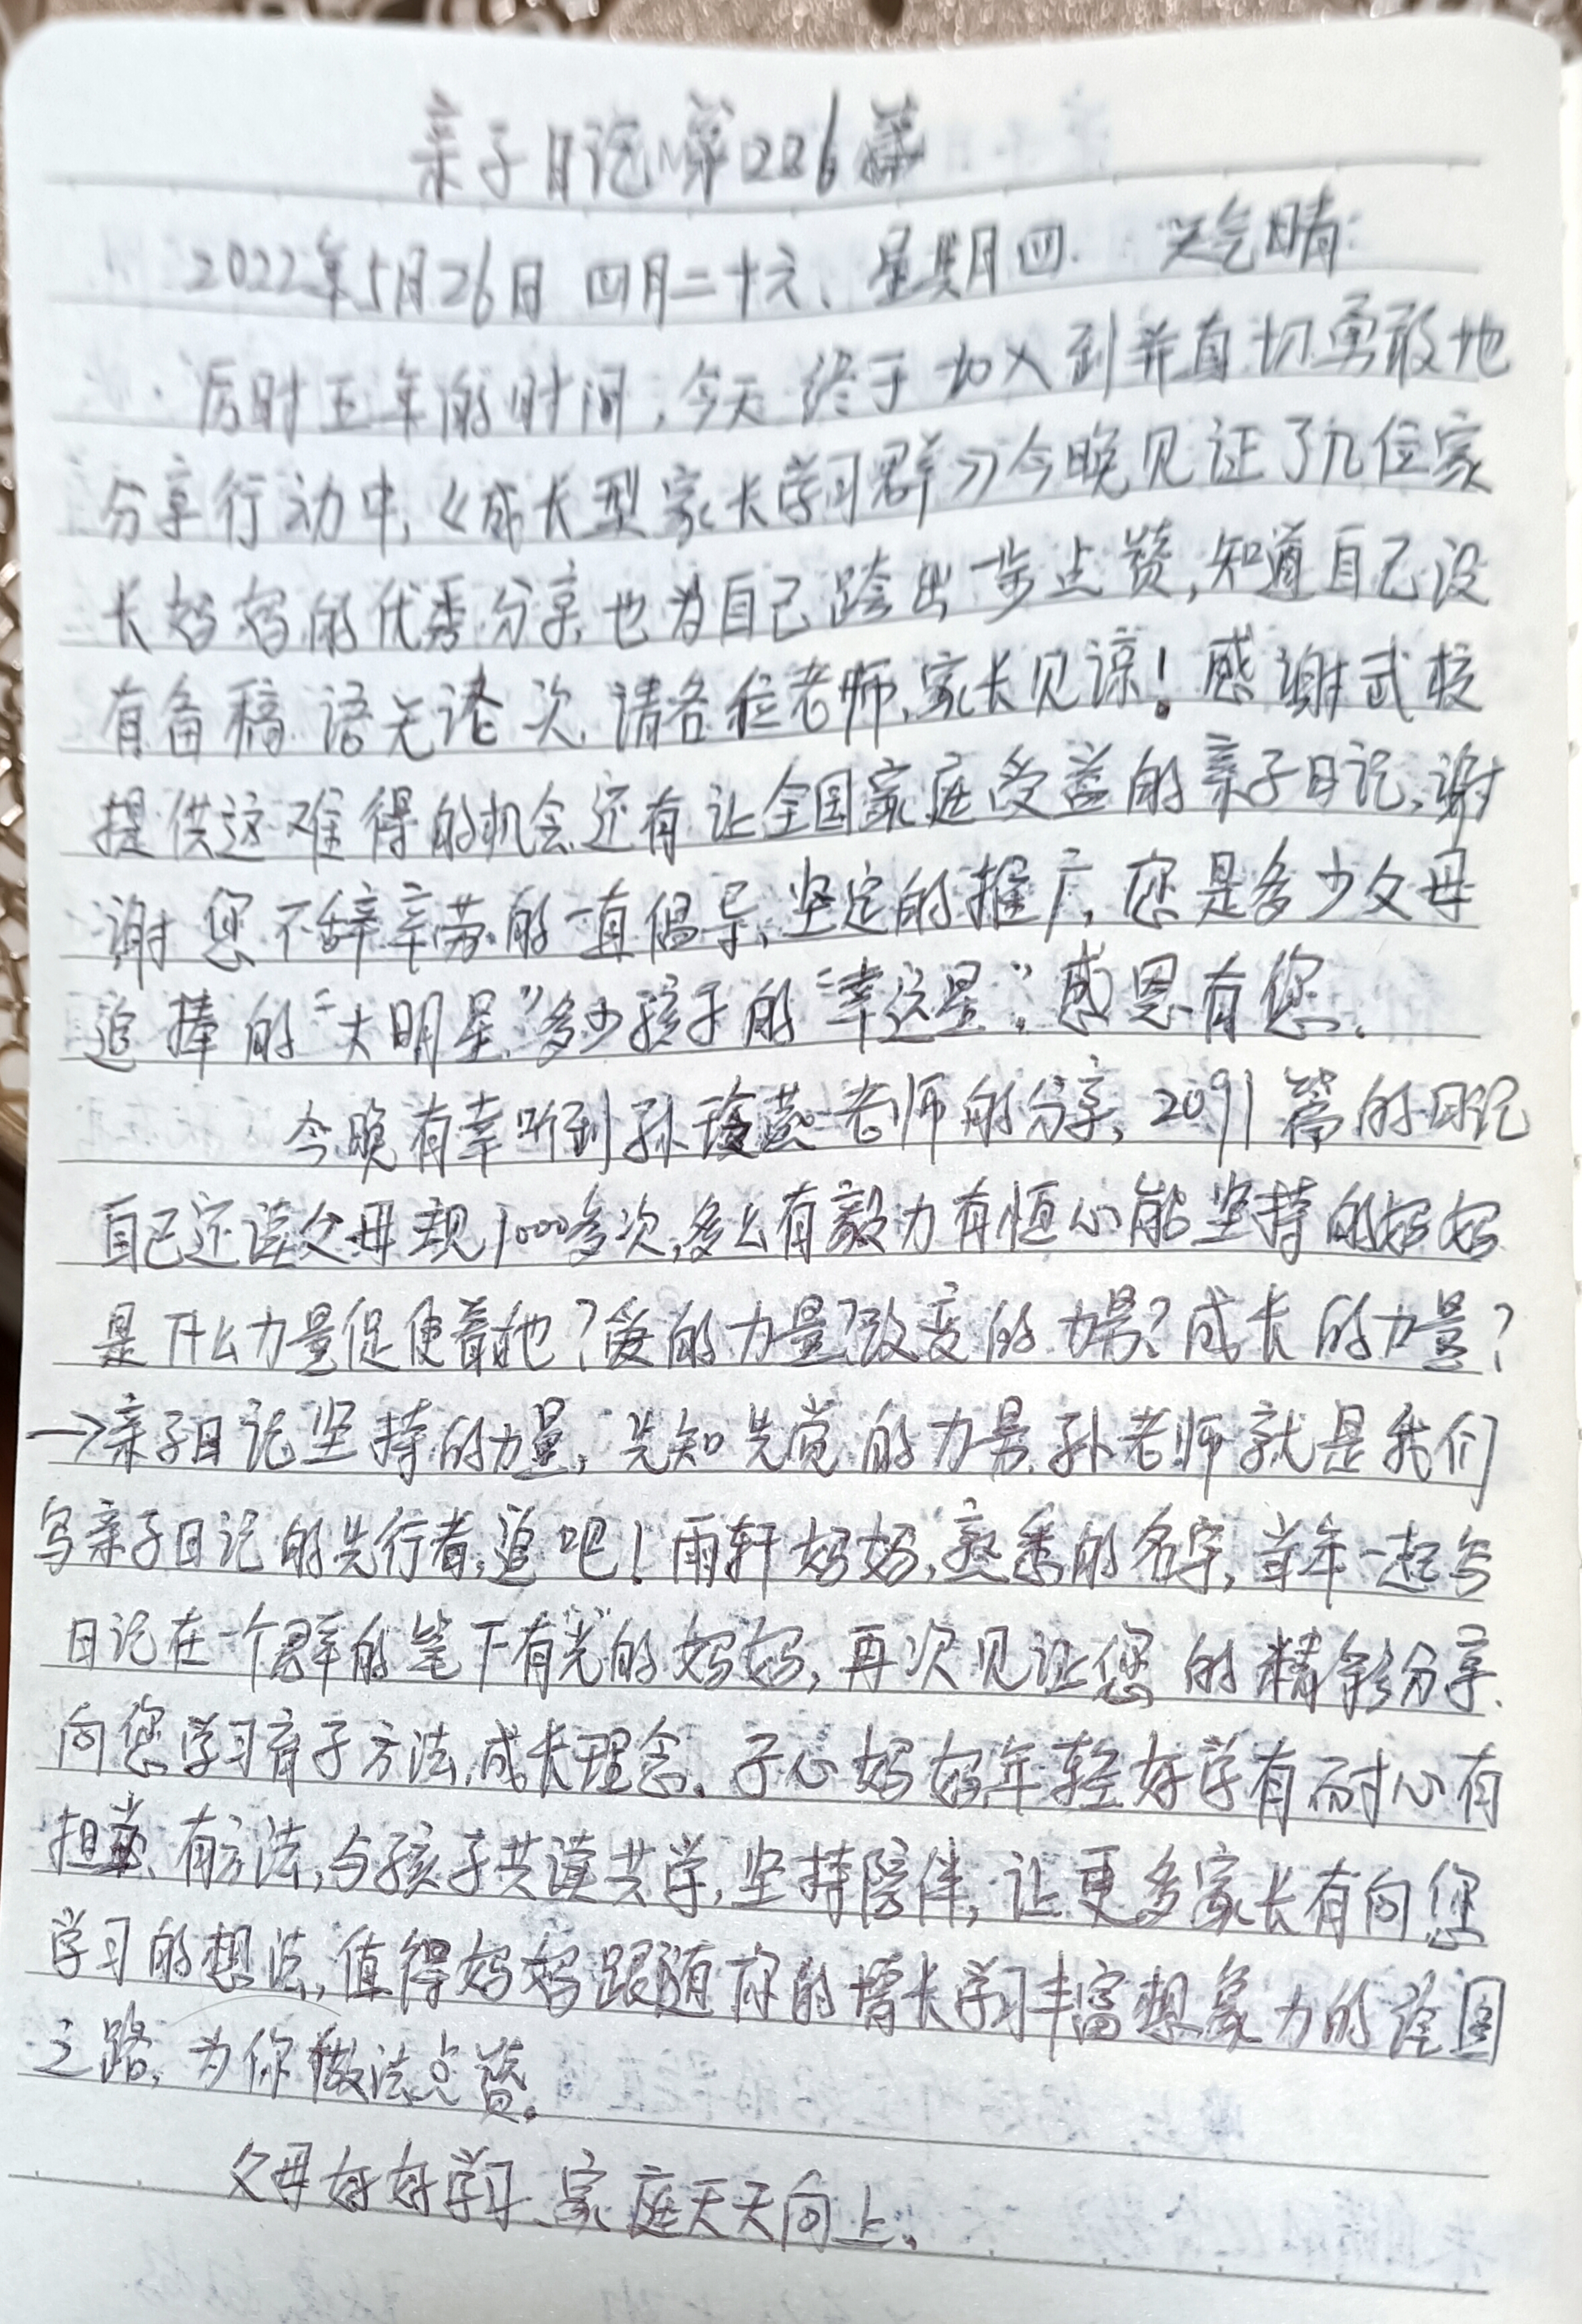 亲子日记第226篇
2022年5月26日 四月二十六、星期四 天气晴
历时五年的时间,今天终于加入到并直切勇敢地
分享行动中,《成长型家长学习群》今晚见证了几位家
长妈妈的优秀分享,也为自己跨出一步点赞,知道自己没
有备稿 语无论次,请各位老师,家长见谅!感谢武校
提供这难得的机会,还有让全国家庭受益的亲子日记,谢
谢您不辞辛劳的一直倡导,坚定的推广,您是多少父母
追捧的“大明星”多少孩子的“幸运星”。感恩有您。
今晚有幸听到孙 老师的分享,2091篇的日记
自己还读父母规1000多次,多么有毅力有恒心能坚持的妈妈
是什么力量促使着她?爱的力量?改变的力量?成长的力量?
→亲子日记坚持的力量,先知先觉的力量,孙老师就是我们
写亲子日记的先行者,追吧!雨轩妈妈,熟悉的名字,当年一起写
日记在一个群的笔下有“光”的妈妈,再次见证您的精彩分享
向您学习育子方法,成长理念。子心妈妈年轻好学有耐心有
担当、有方法,与孩子共读共学,坚持陪伴,让更多家长有向您
学习的想法,值得妈妈跟随你的增长学习丰富想象力的绘图
之路,为你做法点赞。
父母好好学习、家庭天天向上。